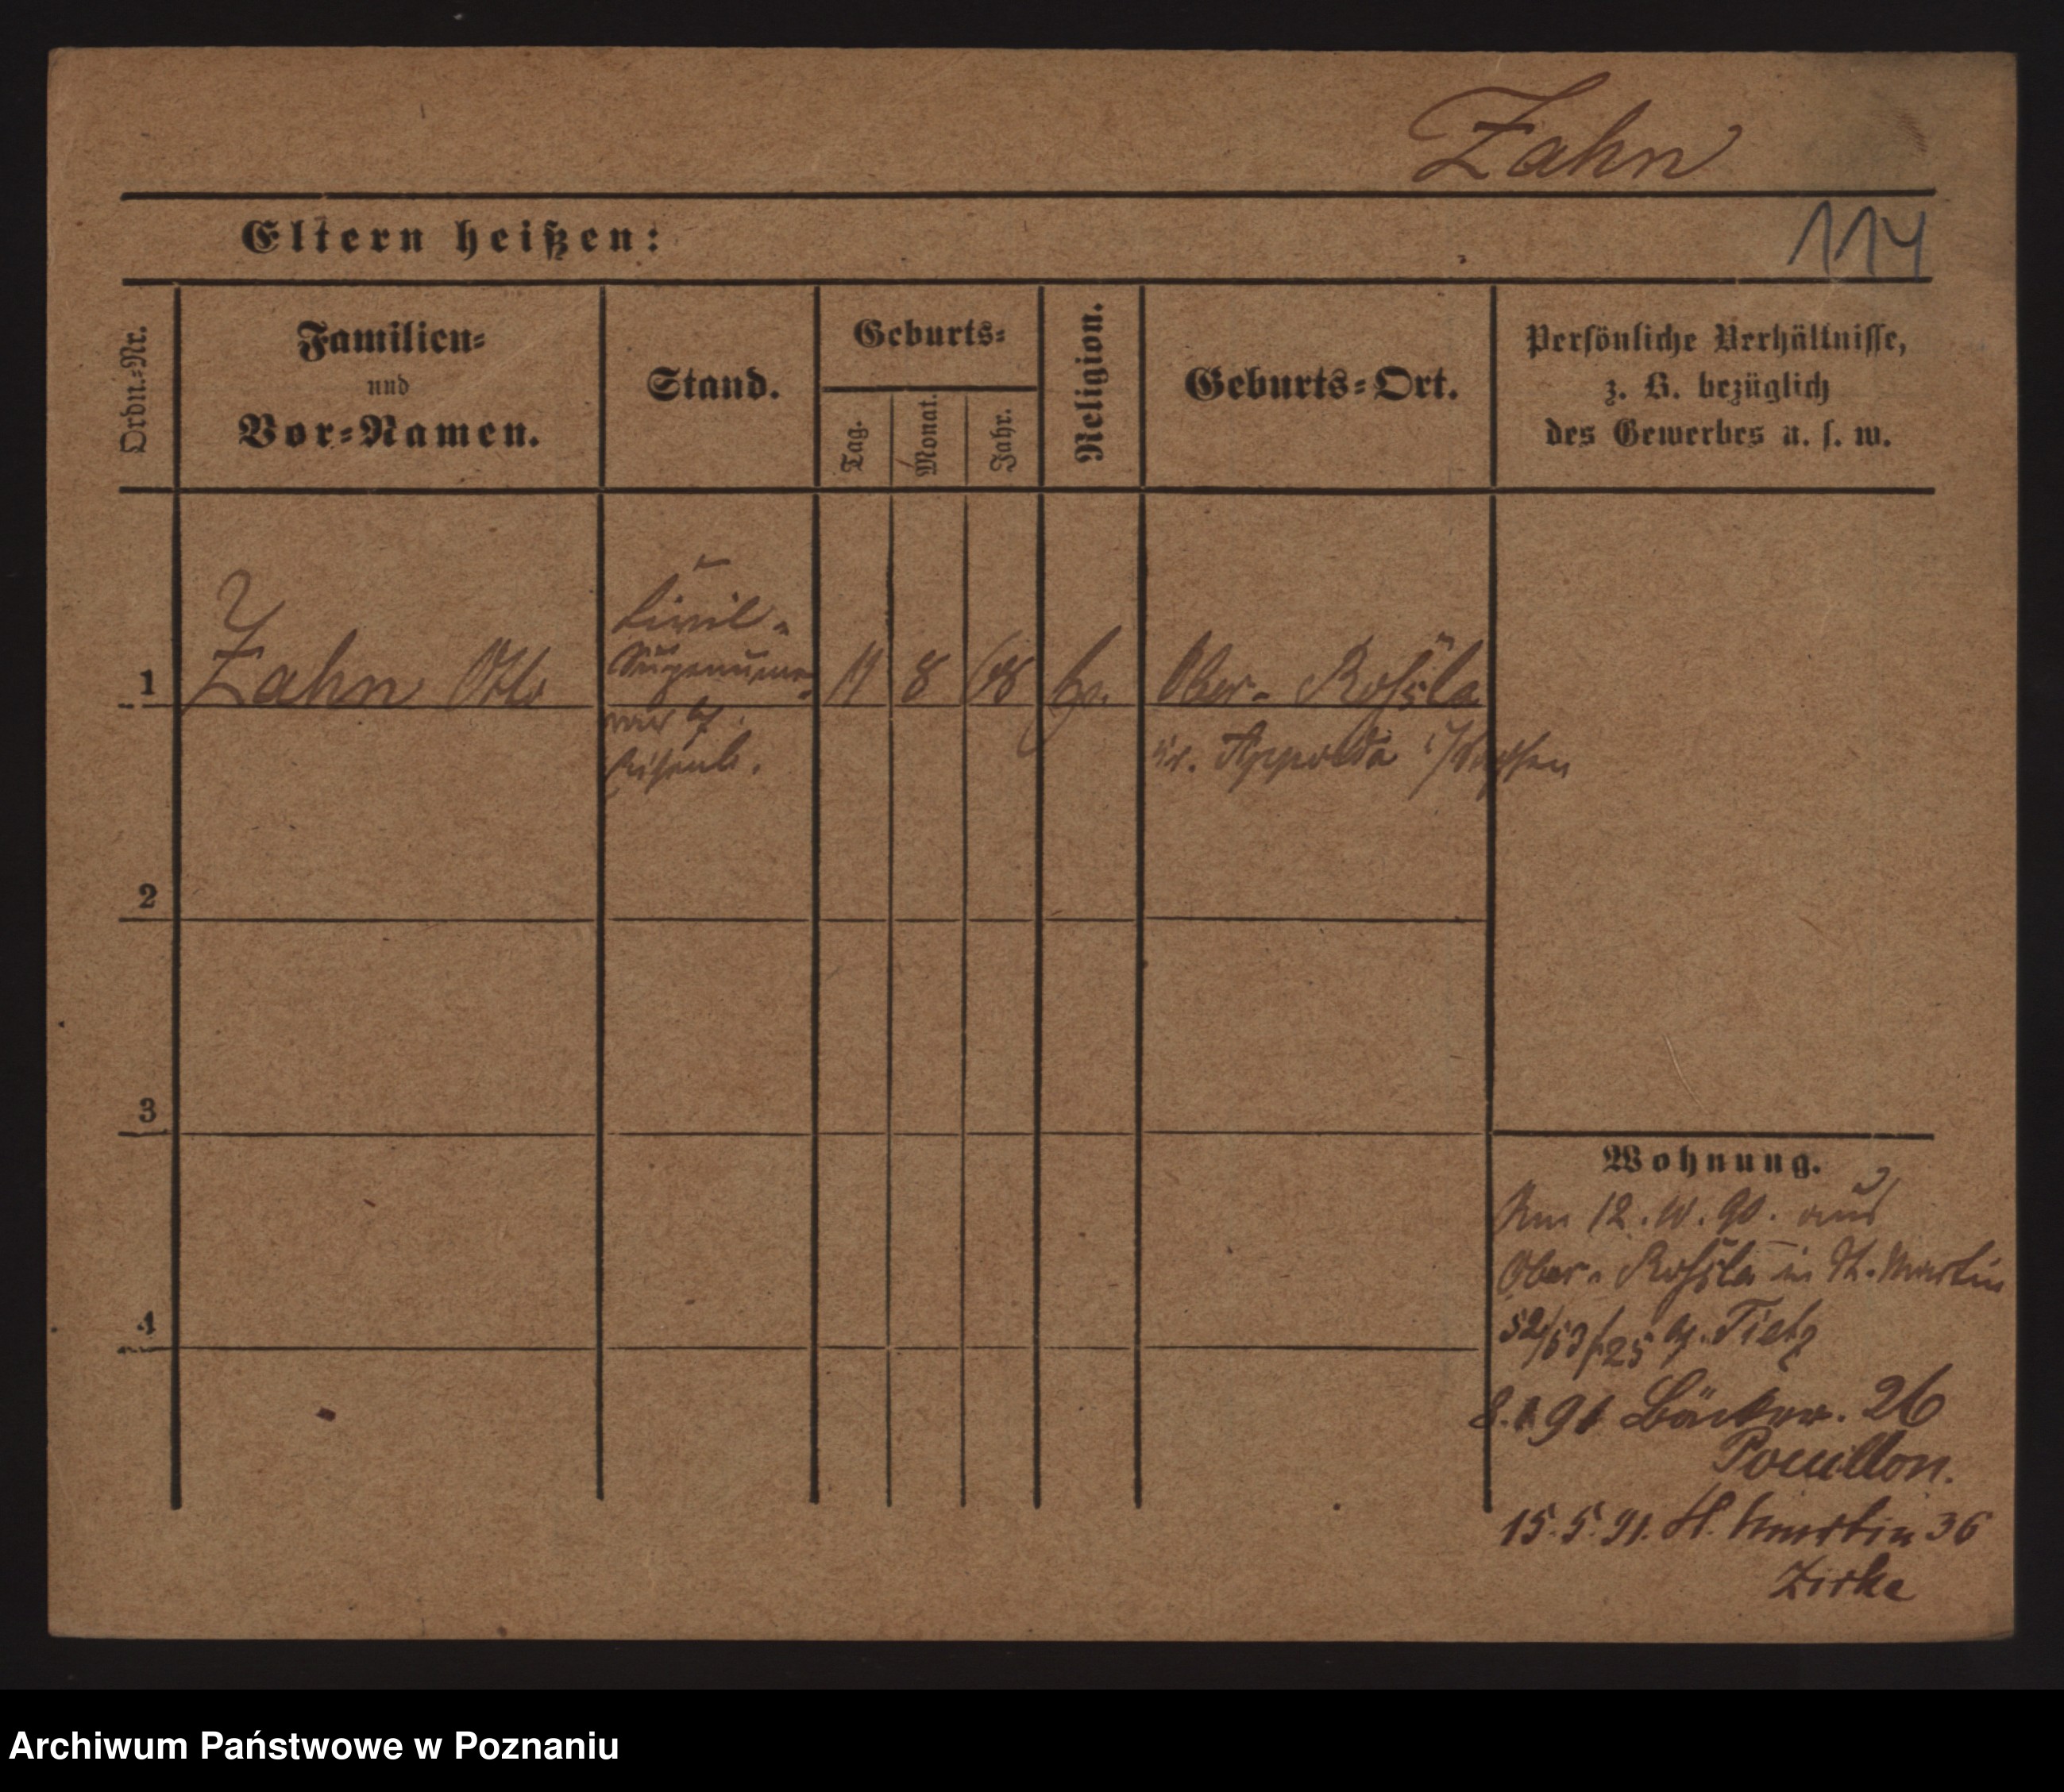 Zahn
Eltern heißen:
114
Ordn.-Nr.
Familien-
und
Vor-Namen.
Stand.
Geburts-
Tag.
Monat.
Jahr.
Religion.
Geburts-Ort.
Persönliche Verhältnisse,
z. B. bezüglich
des Gewerbes u. s. w.
1
Zahn Otto
Civil-
8
68
Ober- Roßla
Appolda
2
3
4
Wohnung.
Am 12. 10. 90. aus
Ober- Roßla in St. Martin
52/53 / 25 Tietz
8. 1 91 Bäckerstr. 26
Pouillon.
15. 5. 91. St. Martin 36
Zirke
Archiwum Państwowe w Poznaniu